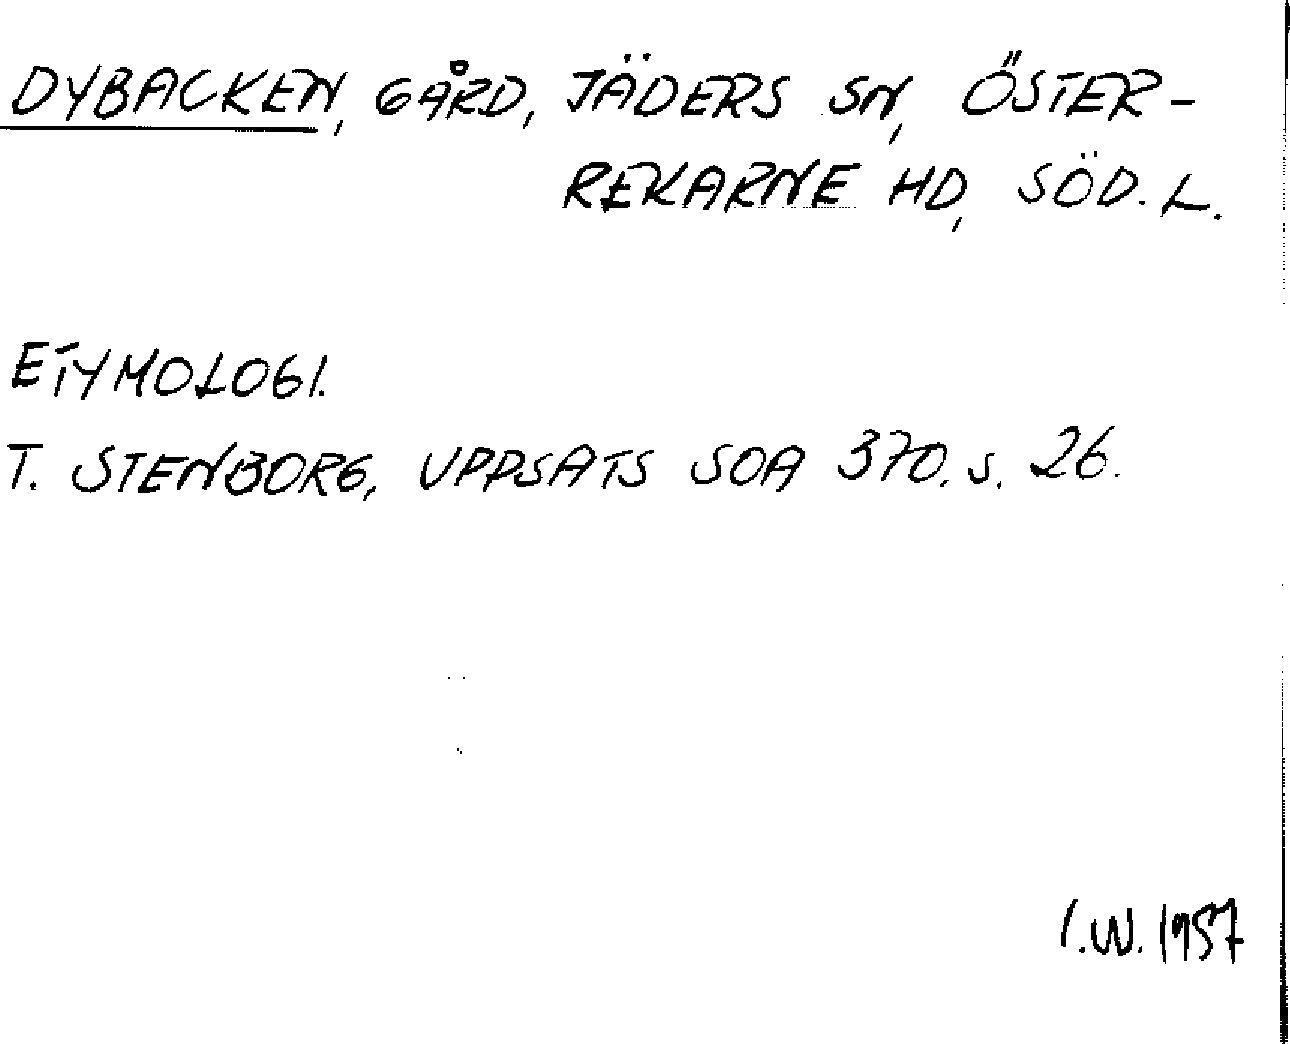 DYBACKEN, GÅRD, JÄDERS SN, ÖSTER-
REKARNE HD, SÖD. L.
ETYMOLOGI.
T. STENBORG, UPPSATS SOA 370. s. 26.
I.W. 1957